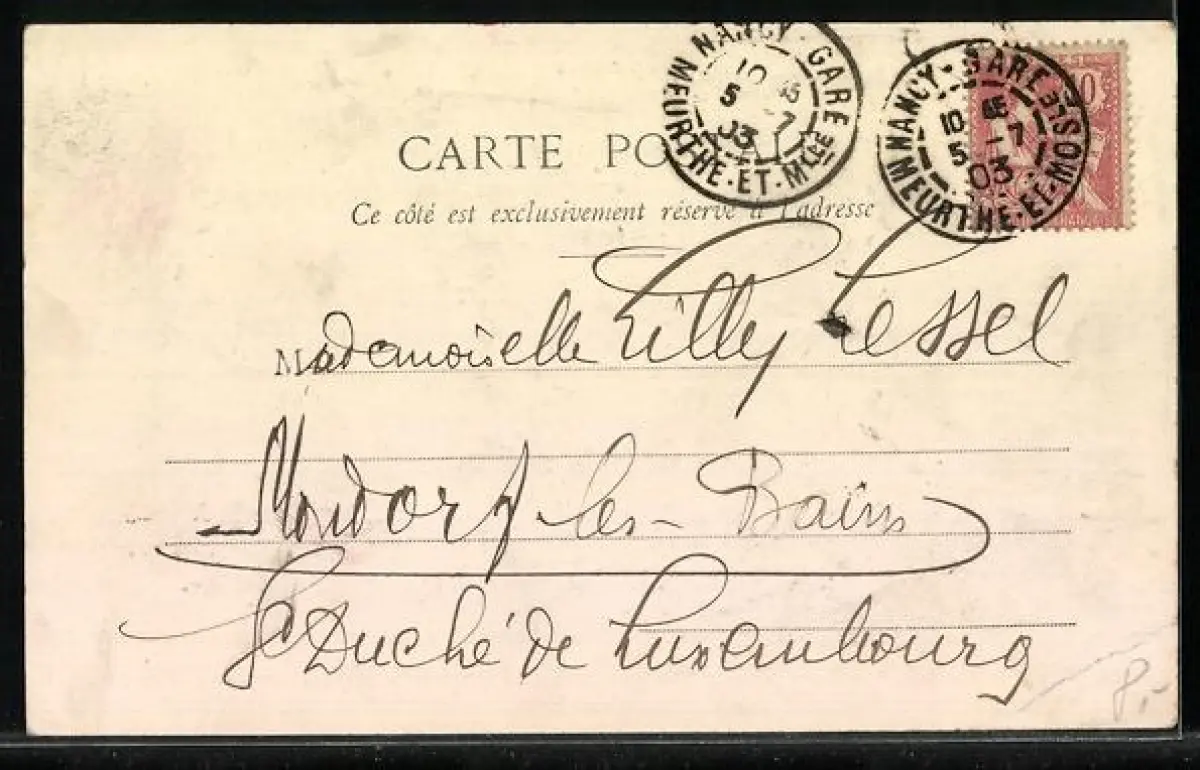 NANCY - GARE
10 45
5 -7
03
MEURTHE-ET-MLLE
NANCY - GARE
10 45
5 -7
03
MEURTHE-ET-MOSLLE
10
CARTE POSTALE
Ce côté est exclusivement réservé à l'adresse
Mademoiselle Lilly Lessel
Mondorf les-Bains
Gd Duché de Luxembourg
8,-